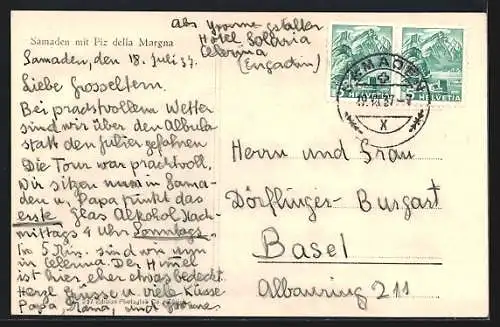 Samaden mit Piz della Margna
Abs Yvonne Gstalter
Hôtel Solaria
Celerina
(Engadin)
Samaden, den 18. Juli 37.
Liebe Grosseltern.
Bei prachtvollem Wetter
sind wir über den Albula
statt den Julier gefahren
Die Tour war prachtvoll,
Wir sitzen nun in Sama-
den u. Papa trinkt das
erste Glas Alkohol Nach-
mittags 4 Uhr Sonntags.
In 5 Min. sind wir nun
in Celerina. Der Himmel
ist hier eher etwas bedeckt.
Herzl. Grüsse u. viele Küsse
Papa, Mama, und Yvonne
HELVETIA
SAMADEN
X
Herrn und Frau
Dörflinger-Burgart
Basel
Albanring 211